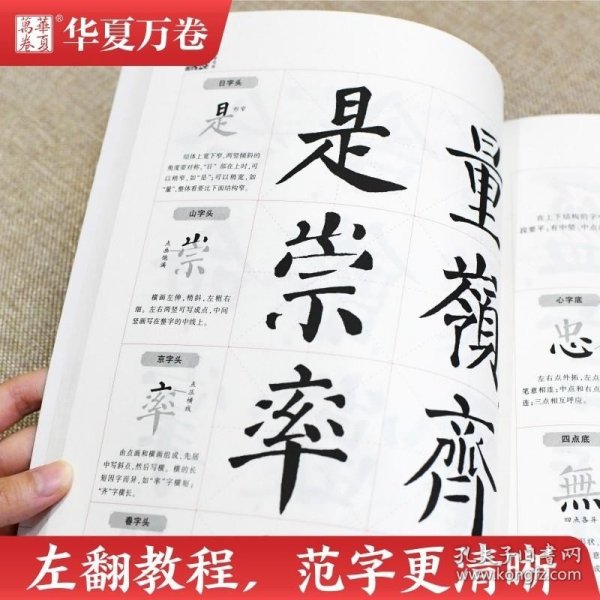 萬卷 華夏
®
华夏万卷
日字头
是
粗窄
结体上宽下窄，两竖倾斜的
角度要对称，“日”部在上时，可
以稍窄，如“是”；可以稍宽，如
“量”，整体看要比下面结构窄。
山字头
崇
点画饱满
横画左伸，稍斜，左粗右
细；左右两竖可写成点，中间
竖画写在整字的中线上。
京字头
率
点压横线
由点画和横画组成，先居
中写斜点，然后写横。横的长
短因字而异，如“率”字横短；
“齐”字横长。
春字头
是
崇
率
量
嶺
齊
在上下结构的字中
段要平；有中竖，中点
心字底
忠
左右点外拓，左点
笔意相连；中点和右点
连；三点相互呼应。
四点底
無
四点各异
左翻教程，范字更清晰
孔夫子旧书网
www.kongfz.com